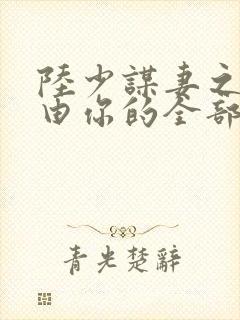 陸少謀妻之
由你的全部
青光楚辭